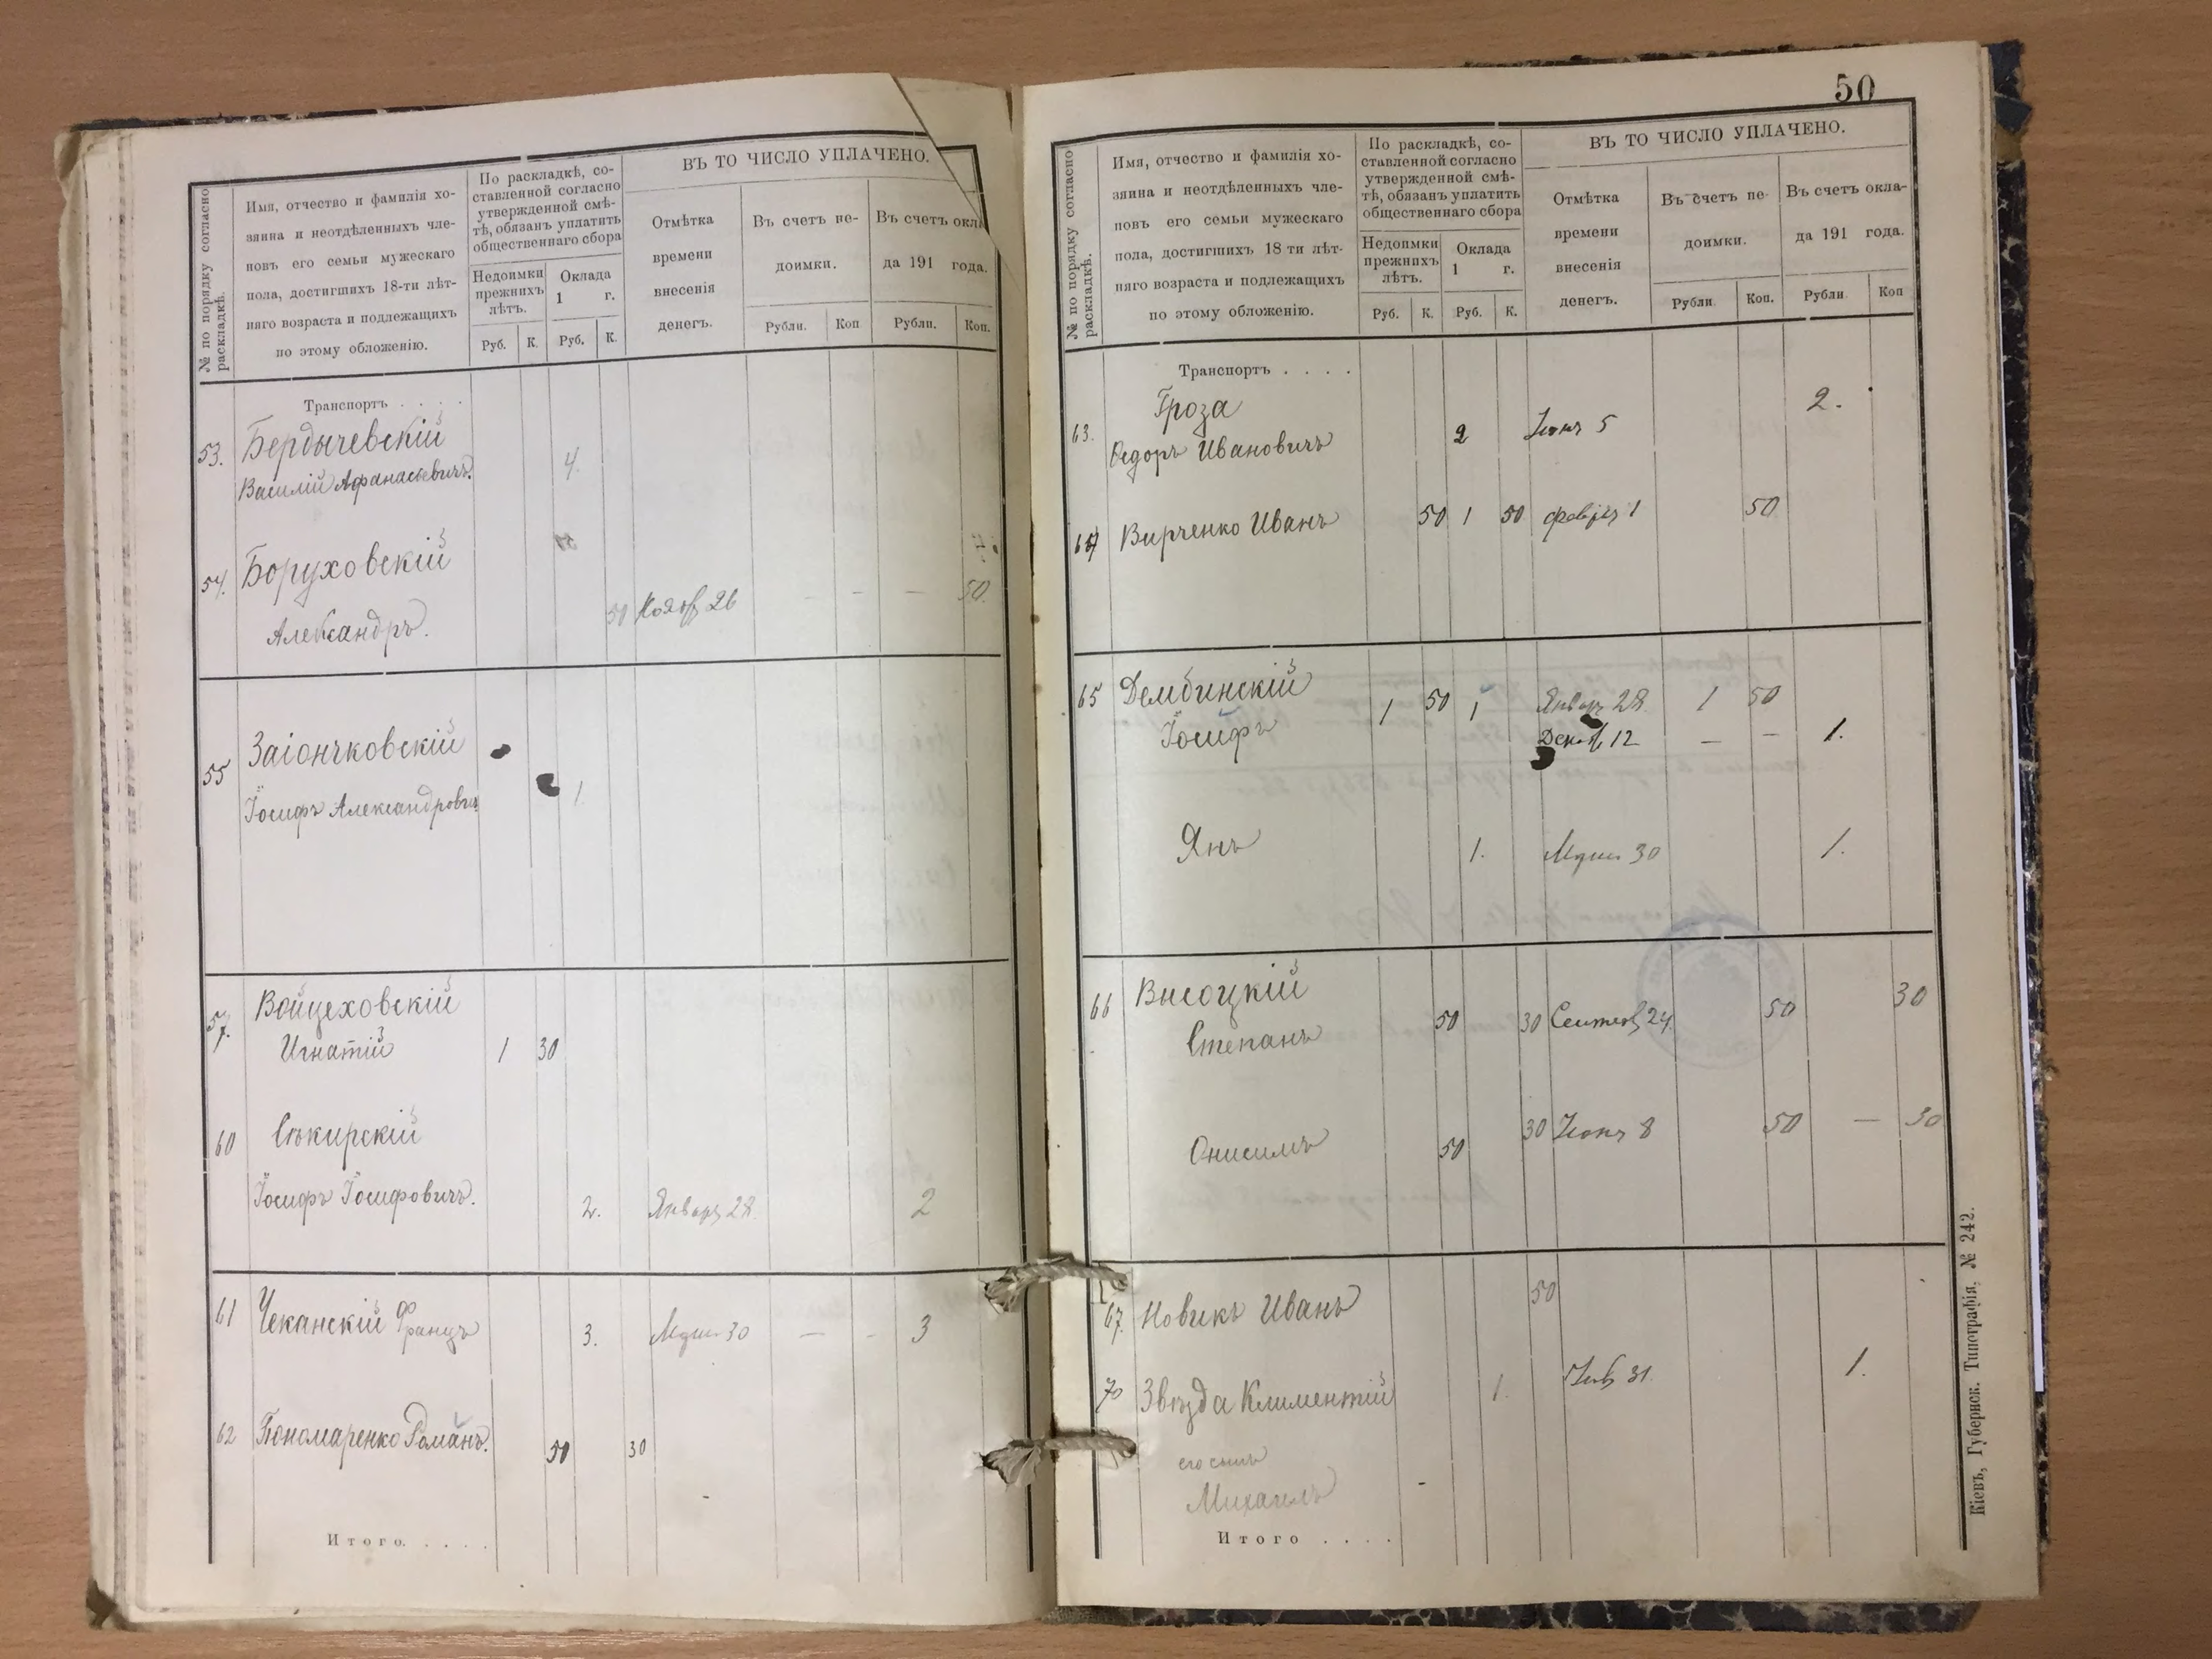 № по порядку согласно раскладкѣ.
Имя, отчество и фамилія хо-
зяина и неотдѣленныхъ чле-
новъ его семьи мужескаго
пола, достигшихъ 18-ти лѣт-
няго возраста и подлежащихъ
по этому обложенію.
По раскладкѣ, со-
ставленной согласно
утвержденной смѣ-
тѣ, обязанъ уплатить
общественнаго сбора
Недоимки
прежнихъ
лѣтъ.
Оклада
1 г.
Руб. К. Руб. К.
ВЪ ТО ЧИСЛО УПЛАЧЕНО.
Отмѣтка
времени
внесенія
денегъ.
Въ счетъ не-
доимки.
Рубли. Коп
Въ счетъ окла
да 191 года.
Рубли. Коп.
Транспортъ . . . .
53. Бердычевскій
Василій Афанасьевичъ. 4.
54. Боруховскій
Александръ. 50 Нояб 26 — — — 50.
55 Заіончковскій
Іосифъ Александровичъ 1.
57. Войцеховскій
Игнатій 1 30
60 Сѣкирскій
Іосифъ Іосифовичъ. 2. Январ 28 2
61 Чеканскій Францъ 3. 30 — - 3
62 Пономаренко Романъ. 50 30
Итого. . . . .
50
№ по порядку согласно раскладкѣ.
Имя, отчество и фамилія хо-
зяина и неотдѣленныхъ чле-
новъ его семьи мужескаго
пола, достигшихъ 18 ти лѣт-
няго возраста и подлежащихъ
по этому обложенію.
По раскладкѣ, со-
ставленной согласно
утвержденной смѣ-
тѣ, обязанъ уплатить
общественнаго сбора
Недоимки
прежнихъ
лѣтъ.
Оклада
1 г.
Руб. К. Руб. К.
ВЪ ТО ЧИСЛО УПЛАЧЕНО.
Отмѣтка
времени
внесенія
денегъ.
Въ счетъ не-
доимки.
Рубли. Коп.
Въ счетъ окла-
да 191 года.
Рубли Коп
Транспортъ . . . .
63. Гроза
Ѳедоръ Ивановичъ 2 5 2.
64 Вирченко Иванъ 50 1 50 1 50
65 Дембинскій
Іосифъ 1 50 1 Январ 28 1 50
Декаб 12 — — 1.
Янъ 1. 30 1.
66 Высоцкій
Степанъ 50 30 Сентяб 24. 50 30
Онисимъ 50 30 8 50 — 30
67. Новикъ Иванъ 50
70 Звѣзда Климентій 1. 31. 1.
его сынъ
Михаилъ
Итого . . . .
Кіевъ, Губернск. Типографія, № 242.